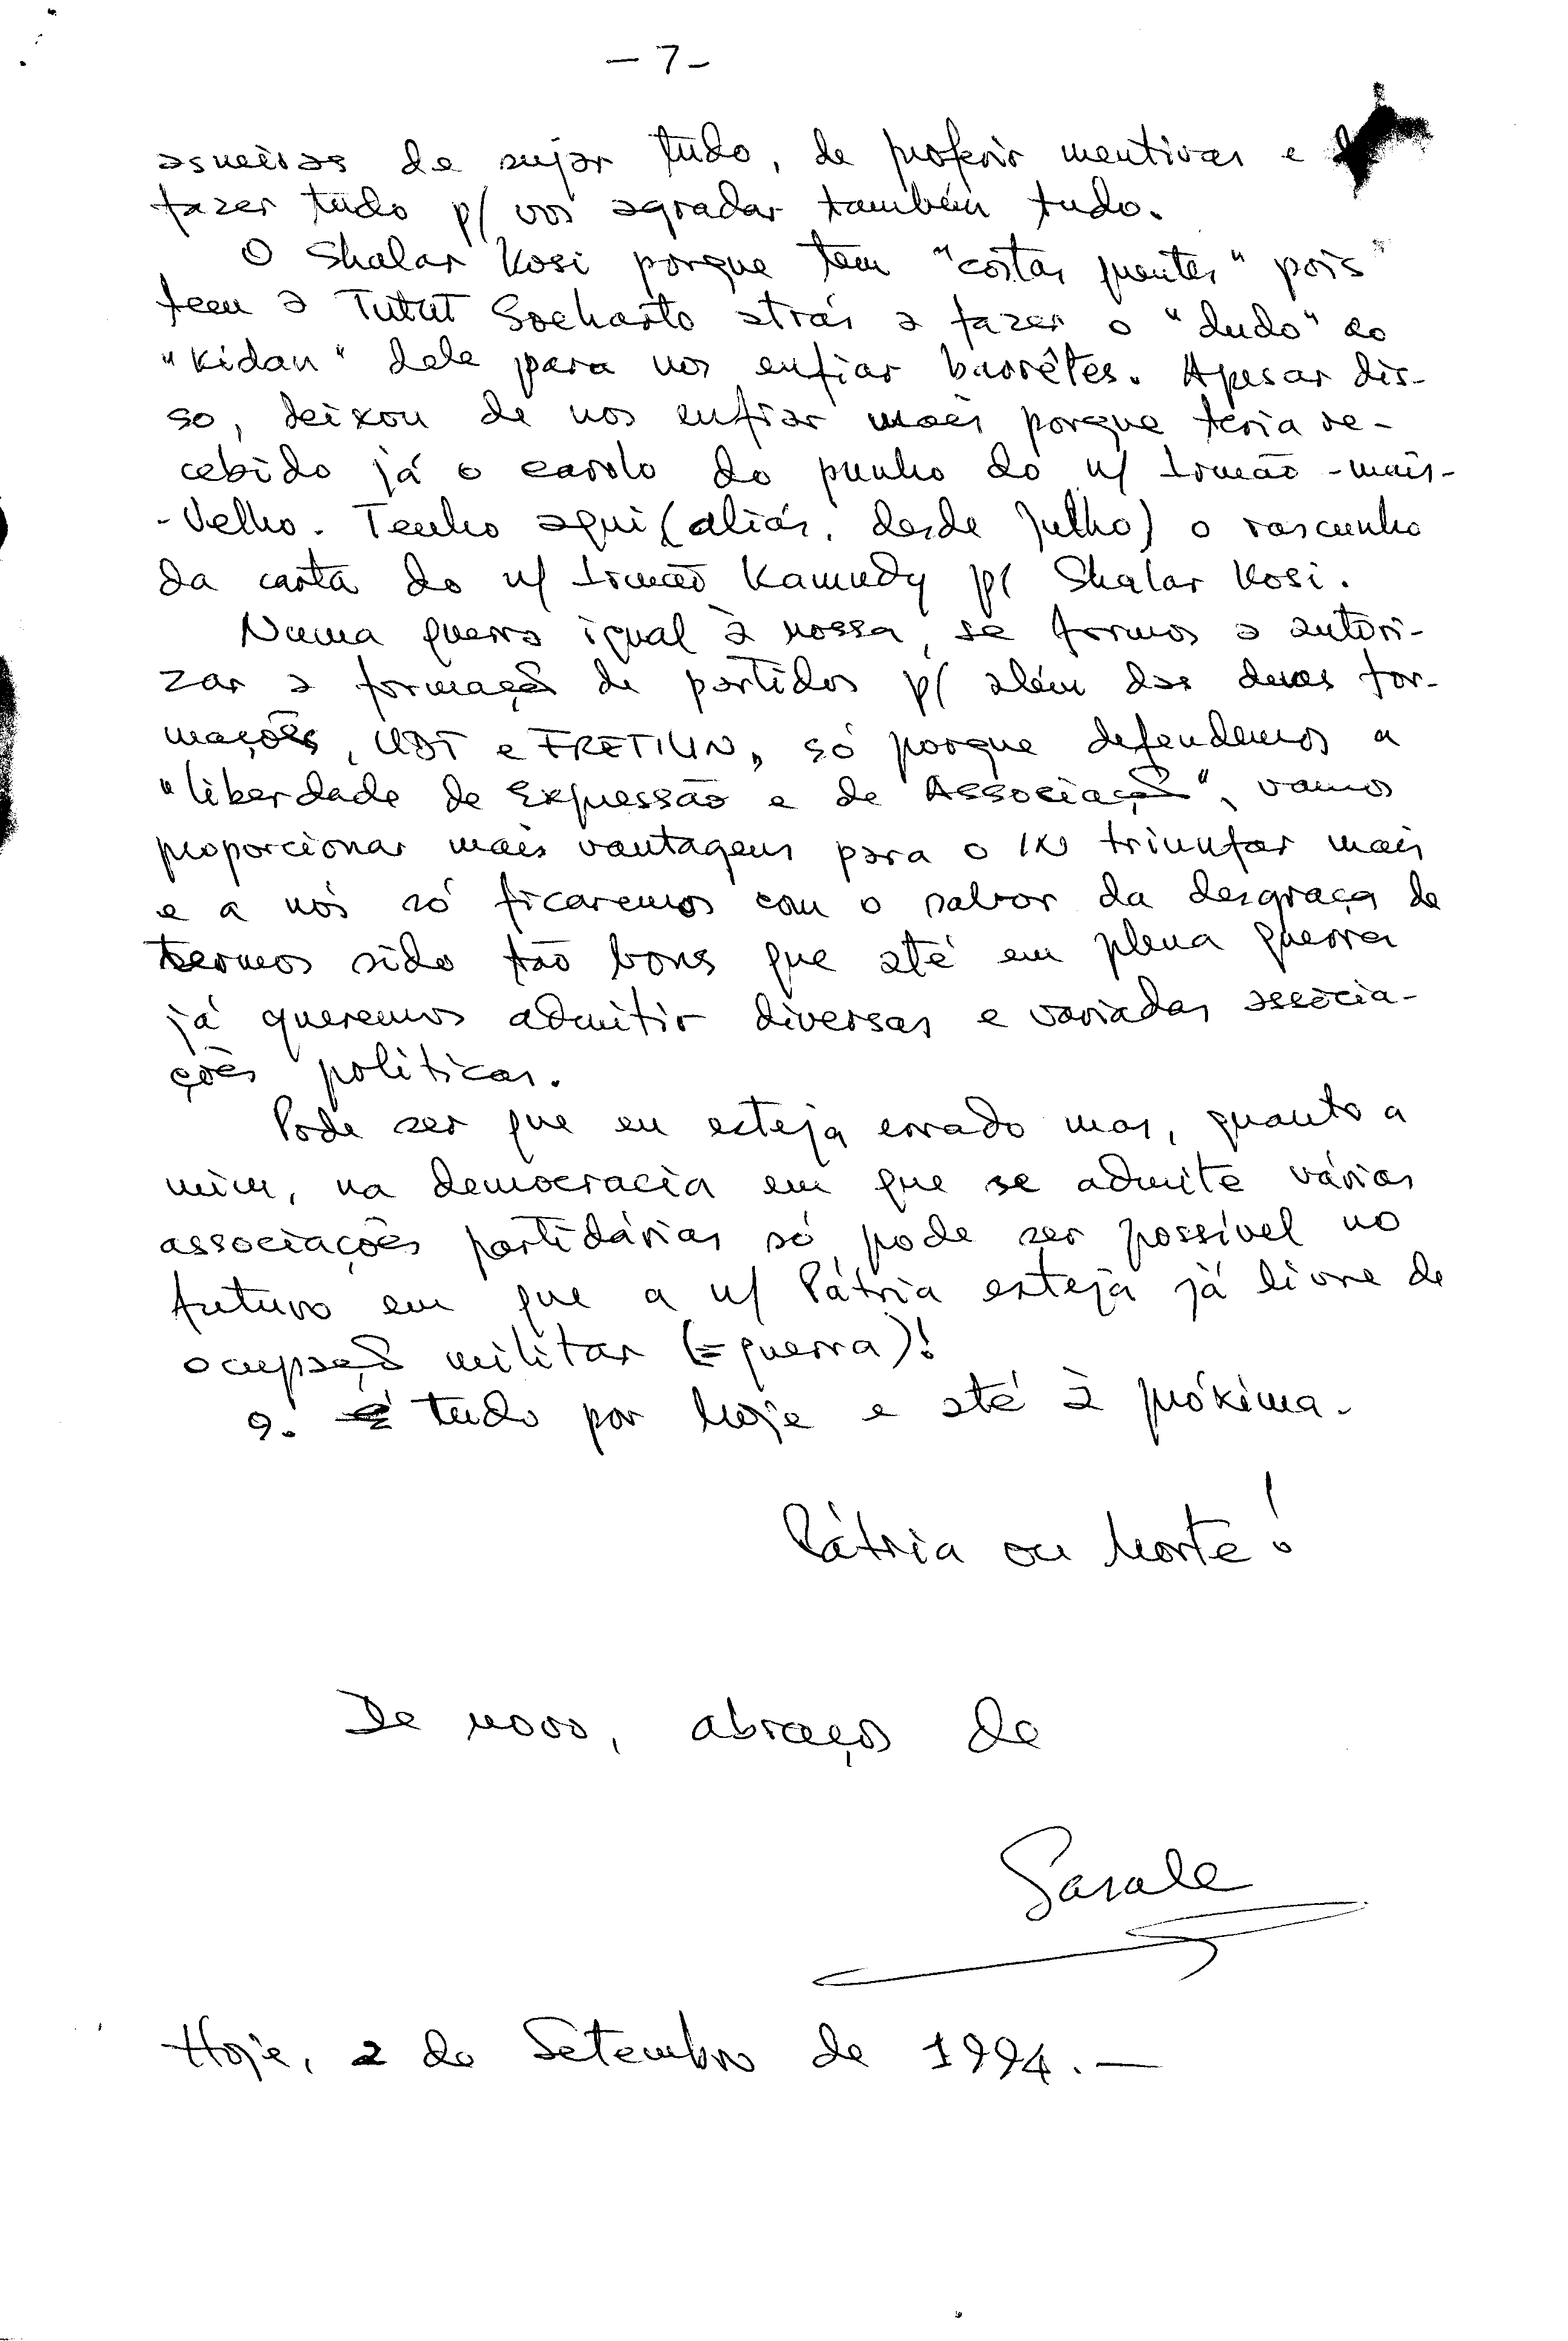 - 7 -
asneiras de sujar tudo, de proferir mentiras e de
fazer tudo p/ vos agradar também tudo.
O Shalar Kosi porque tem "costas quentes" pois
tem a Tutut Soeharto atrás a fazer o "dudo" ao
"Kidan" dele para nos enfiar barrêtes. Apesar dis-
so, deixou de nos enfiar mais porque teria re-
cebido já o carolo do punho do n/ Irmão-mais-
-Velho. Tenho aqui (aliás, desde Julho) o rascunho
da carta do n/ Irmão Kamudy p/ Shalar Kosi.
Numa guerra igual à nossa, se formos a autori-
zar a formação de partidos p/ além das duas for-
mações, UDT e FRETILIN, só porque defendemos a
"liberdade de Expressão e de Associação", vamos
proporcionar mais vantagens para o IN triunfar mais
e a nós só ficaremos com o sabor da desgraça de
termos sido tão bons que até em plena guerra
já queremos admitir diversas e variadas associa-
ções políticas.
Pode ser que eu esteja errado mas, quanto a
mim, na democracia em que se admite várias
associações partidárias só pode ser possível no
futuro em que a n/ Pátria esteja já livre de
ocupação militar (= guerra)!
9. É tudo por hoje e até à próxima.
Pátria ou Morte!
De novo, abraços de
Sarale
Hoje, 2 de Setembro de 1994. —